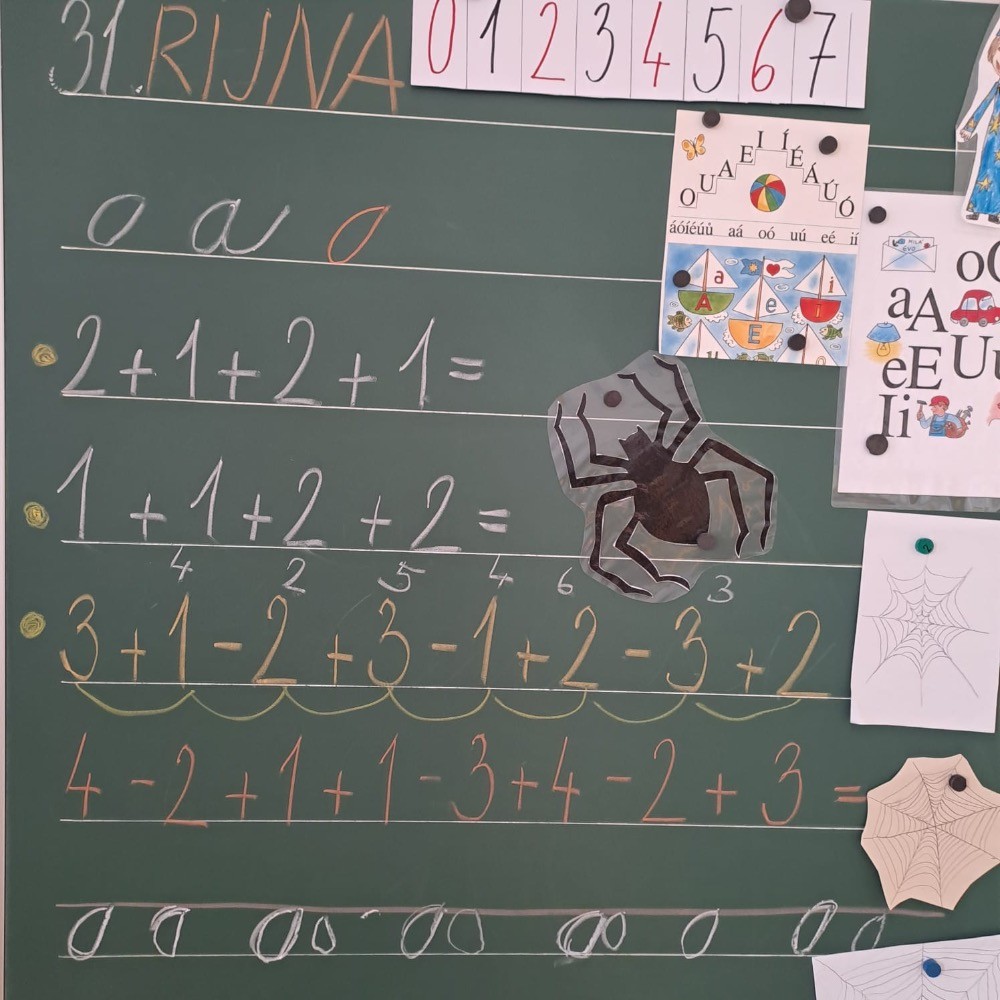 31. RIJNA
0 1 2 3 4 5 6 7
o a o
O U A E I Í É Á Ú Ó
áóíéúů aá oó uú eé ií
a A e E i I
2+1+2+1=
aA
eE Uu
Ii
1+1+2+2=
4 2 5 4 6 3
3+1-2+3-1+2-3+2
4-2+1+1-3+4-2+3=